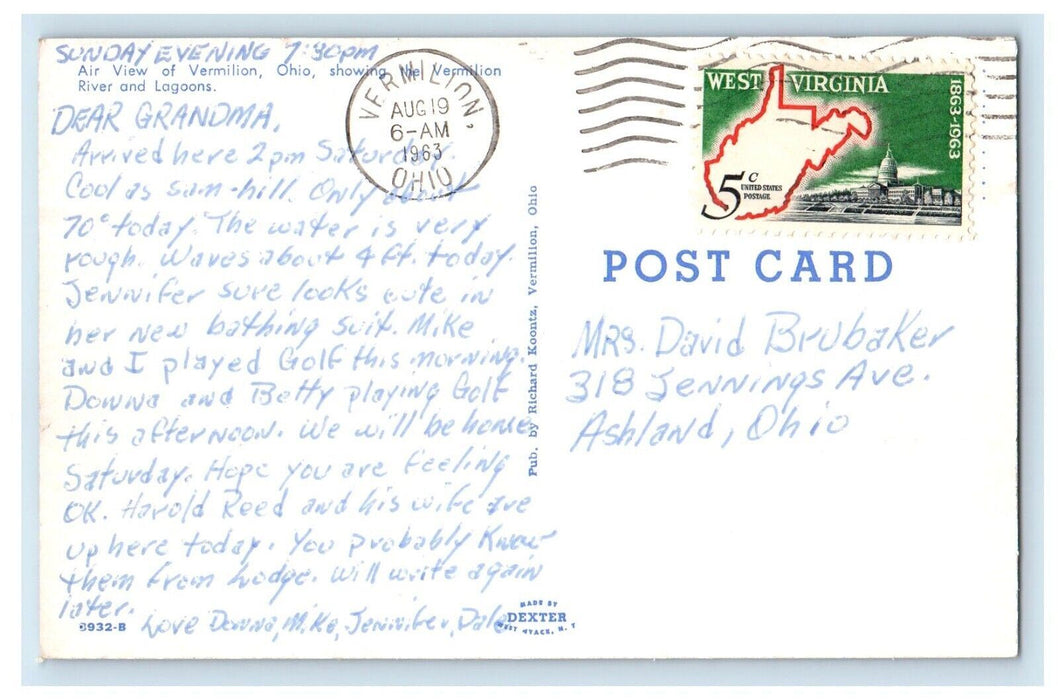 SUNDAY EVENING 7:30pm
Air View of Vermilion, Ohio, showing the Vermilion
River and Lagoons.
DEAR GRANDMA,
Arrived here 2pm Saturday.
Cool as sam-hill. Only about
70° today. The water is very
rough. Waves about 4 ft. today.
Jennifer sure looks cute in
her new bathing suit. Mike
and I played Golf this morning.
Donna and Betty playing Golf
this afternoon. We will be home
Saturday. Hope you are feeling
OK. Harold Reed and his wife are
up here today. You probably know
them from Lodge. Will write again
later.
Love Donna, Mike, Jennifer, Dale
8932-B
MADE BY
DEXTER
WEST NYACK, N. Y.
Pub. by Richard Koontz, Vermilion, Ohio
VERMILION,
AUG 19
6-AM
1963
OHIO
WEST VIRGINIA
1863-1963
5c
UNITED STATES
POSTAGE
POST CARD
Mrs. David Brubaker
318 Jennings Ave.
Ashland, Ohio